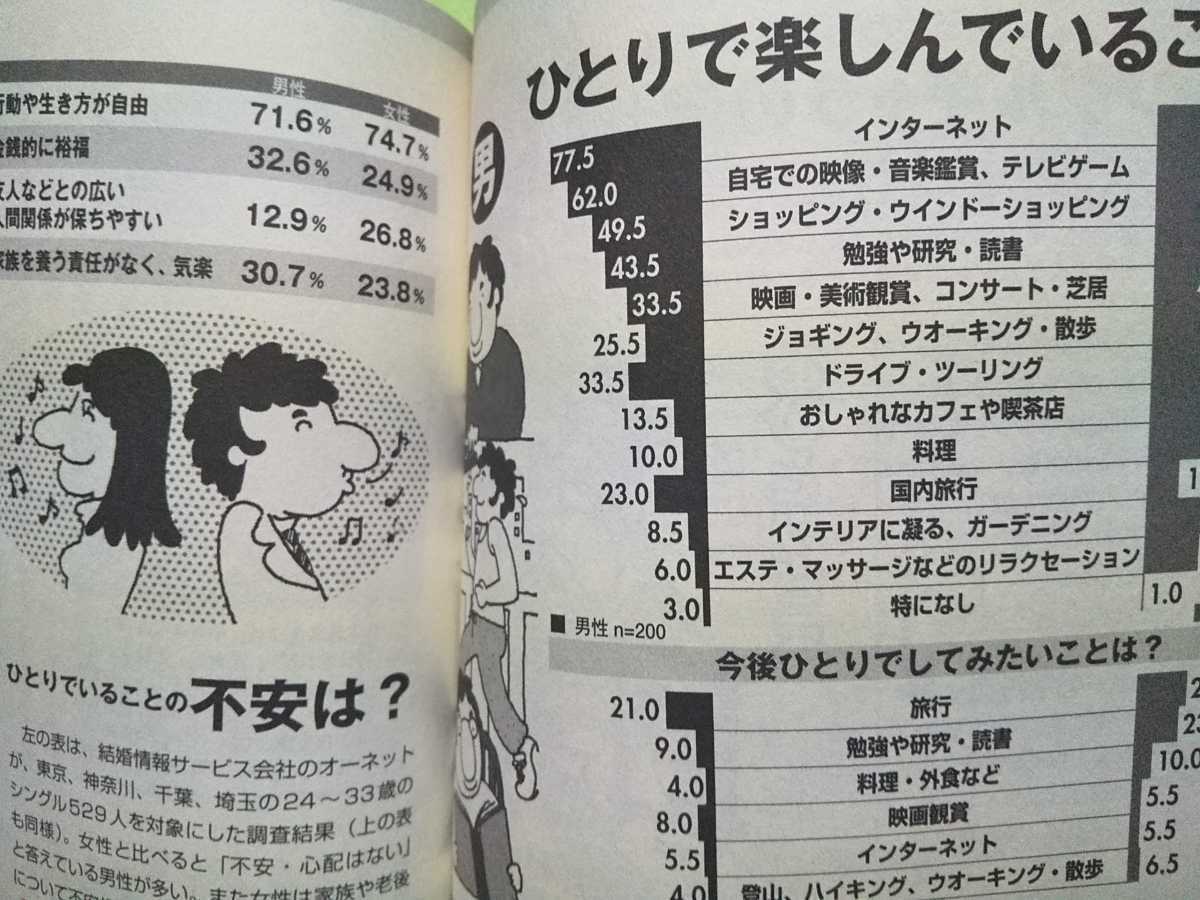 男性 女性
行動や生き方が自由 71.6% 74.7%
金銭的に裕福 32.6% 24.9%
友人などとの広い
人間関係が保ちやすい 12.9% 26.8%
家族を養う責任がなく、気楽 30.7% 23.8%
ひとりでいることの不安は?
左の表は、結婚情報サービス会社のオーネット
が、東京、神奈川、千葉、埼玉の24〜33歳の
シングル529人を対象にした調査結果(上の表
も同様)。女性と比べると「不安・心配はない」
と答えている男性が多い。また女性は家族や老後
について不安
ひとりで楽しんでいるこ
男
77.5 インターネット
62.0 自宅での映像・音楽鑑賞、テレビゲーム
49.5 ショッピング・ウインドーショッピング
43.5 勉強や研究・読書
33.5 映画・美術観賞、コンサート・芝居
25.5 ジョギング、ウオーキング・散歩
33.5 ドライブ・ツーリング
13.5 おしゃれなカフェや喫茶店
10.0 料理
23.0 国内旅行 1
8.5 インテリアに凝る、ガーデニング
6.0 エステ・マッサージなどのリラクセーション
3.0 特になし 1.0
■ 男性 n=200
今後ひとりでしてみたいことは?
21.0 旅行 2
9.0 勉強や研究・読書 23
4.0 料理・外食など 10.0
8.0 映画観賞 5.5
5.5 インターネット 5.5
4.0 登山、ハイキング、ウオーキング・散歩 6.5